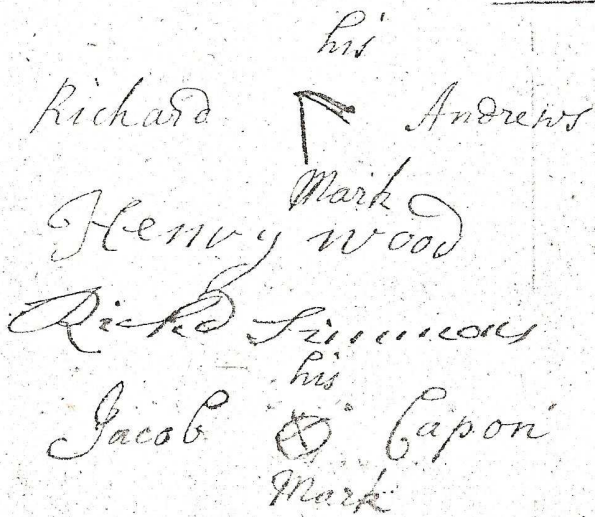 his
Richard Andrews
Mark
Henry Wood
Richd Simmons
his
Jacob Capon
Mark